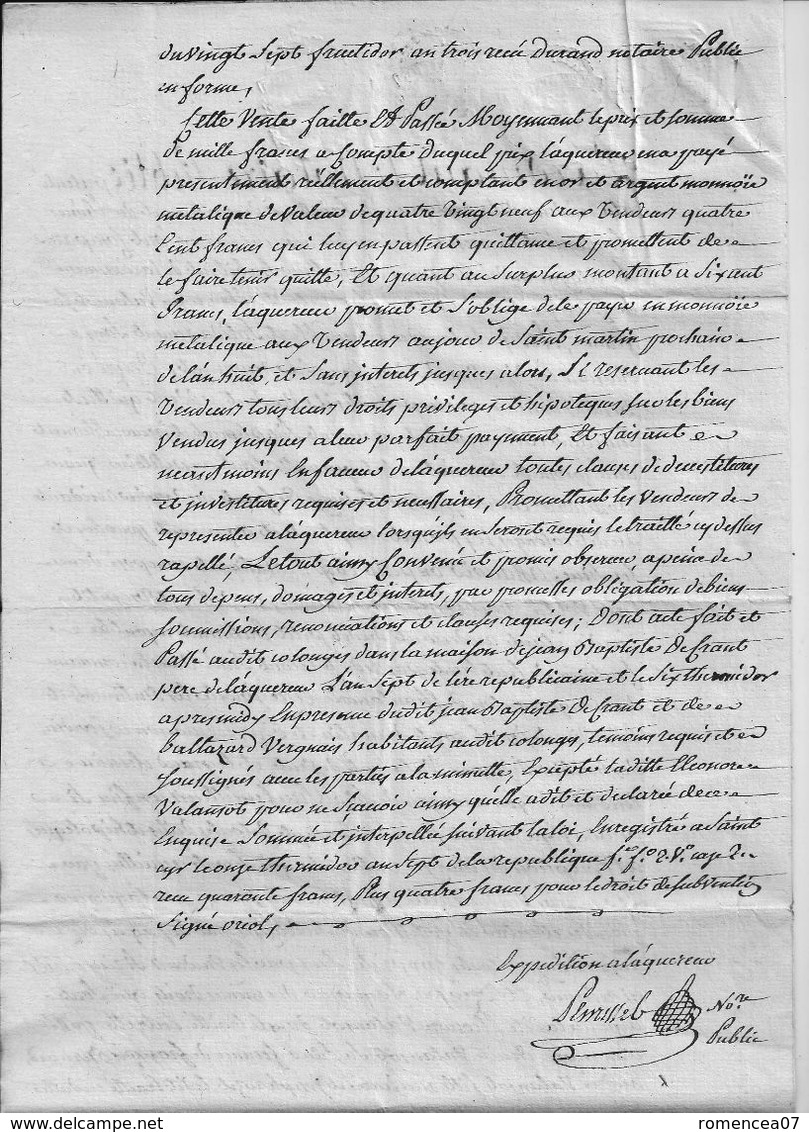 du vingt Sept fructidor an trois recu Durand notaire Public
en forme,
Cette Vente faitte Et Passée Moyennant le prix et somme
de mille francs a Compte duquel prix l'aquereur ma payé
presentement reellement et comptant en or et argent monnoïe
metalique de valeur de quatre vingt neuf aux Vendeurs quatre
Cent francs qui luy en passent quittance et promettent de
le faire tenir quitte, Et quant au Surplus montant a Six cent
francs, l'aquereur promet et S'oblige de le payer en monnoïe
metalique aux Vendeurs au jour de Saint martin prochain
de l'an huit, et Sans interets jusques alors, Se reservant les
Vendeurs tous leurs droits privileges et hipoteques sur les biens
Vendus jusques a leur parfait payment, Et faisant
neantmoins En faveur de l'aquereur toutes clauses de devestitures
et investitures requises et necessaires, Promettant les Vendeurs de
representer a l'aquereur lorsqu'ils en Seront requis le traitté cy dessus
rapellé, Le tout ainsy Convenu et promis observer, a peine de
tous depens, domages et interets, par promesses obligation de biens
Soumissions, renonciations et clauses requises; Dont acte fait et
Passé audit Colonges dans la maison de jean Baptiste Decrant
pere de l'aquereur L'an Sept de l'ere republicaine et le Six thermidor
apres midy En presence dudit jean Baptiste Decrant et de
baltazard Vergnais habitants audit Colonges, temoins requis et
Soussignés avec les parties a la minutte, Excepté laditte Eleonore
Valansot pour ne Sçavoir ainsy qu'elle a dit et declaré de ce
Enquise Sommée et interpellée Suivant la loi, Enregistré a Saint
cyr le onze thermidor an Sept de la republique f.° 2. V.° case 2
recu quarante francs, Plus quatre francs pour le droit de Subvention
Signé oriol,
Expedition a l'aquereur
No.re
Public
www.delcampe.net
romencea07